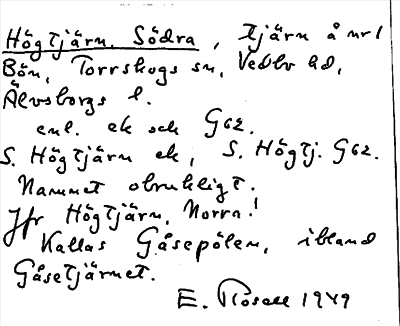 Högtjärn, Södra, tjärn å nr 1
Bön, Torrskogs sn, Vedbo hd,
Älvsborgs l.
enl. ek och G62.
S. Högtjärn ek, S. Högtj. G62.
Namnet obrukligt.
Jfr Högtjärn, Norra!
Kallas Gåsepölen, ibland
Gåsetjärnet.
E. Rosell 1949